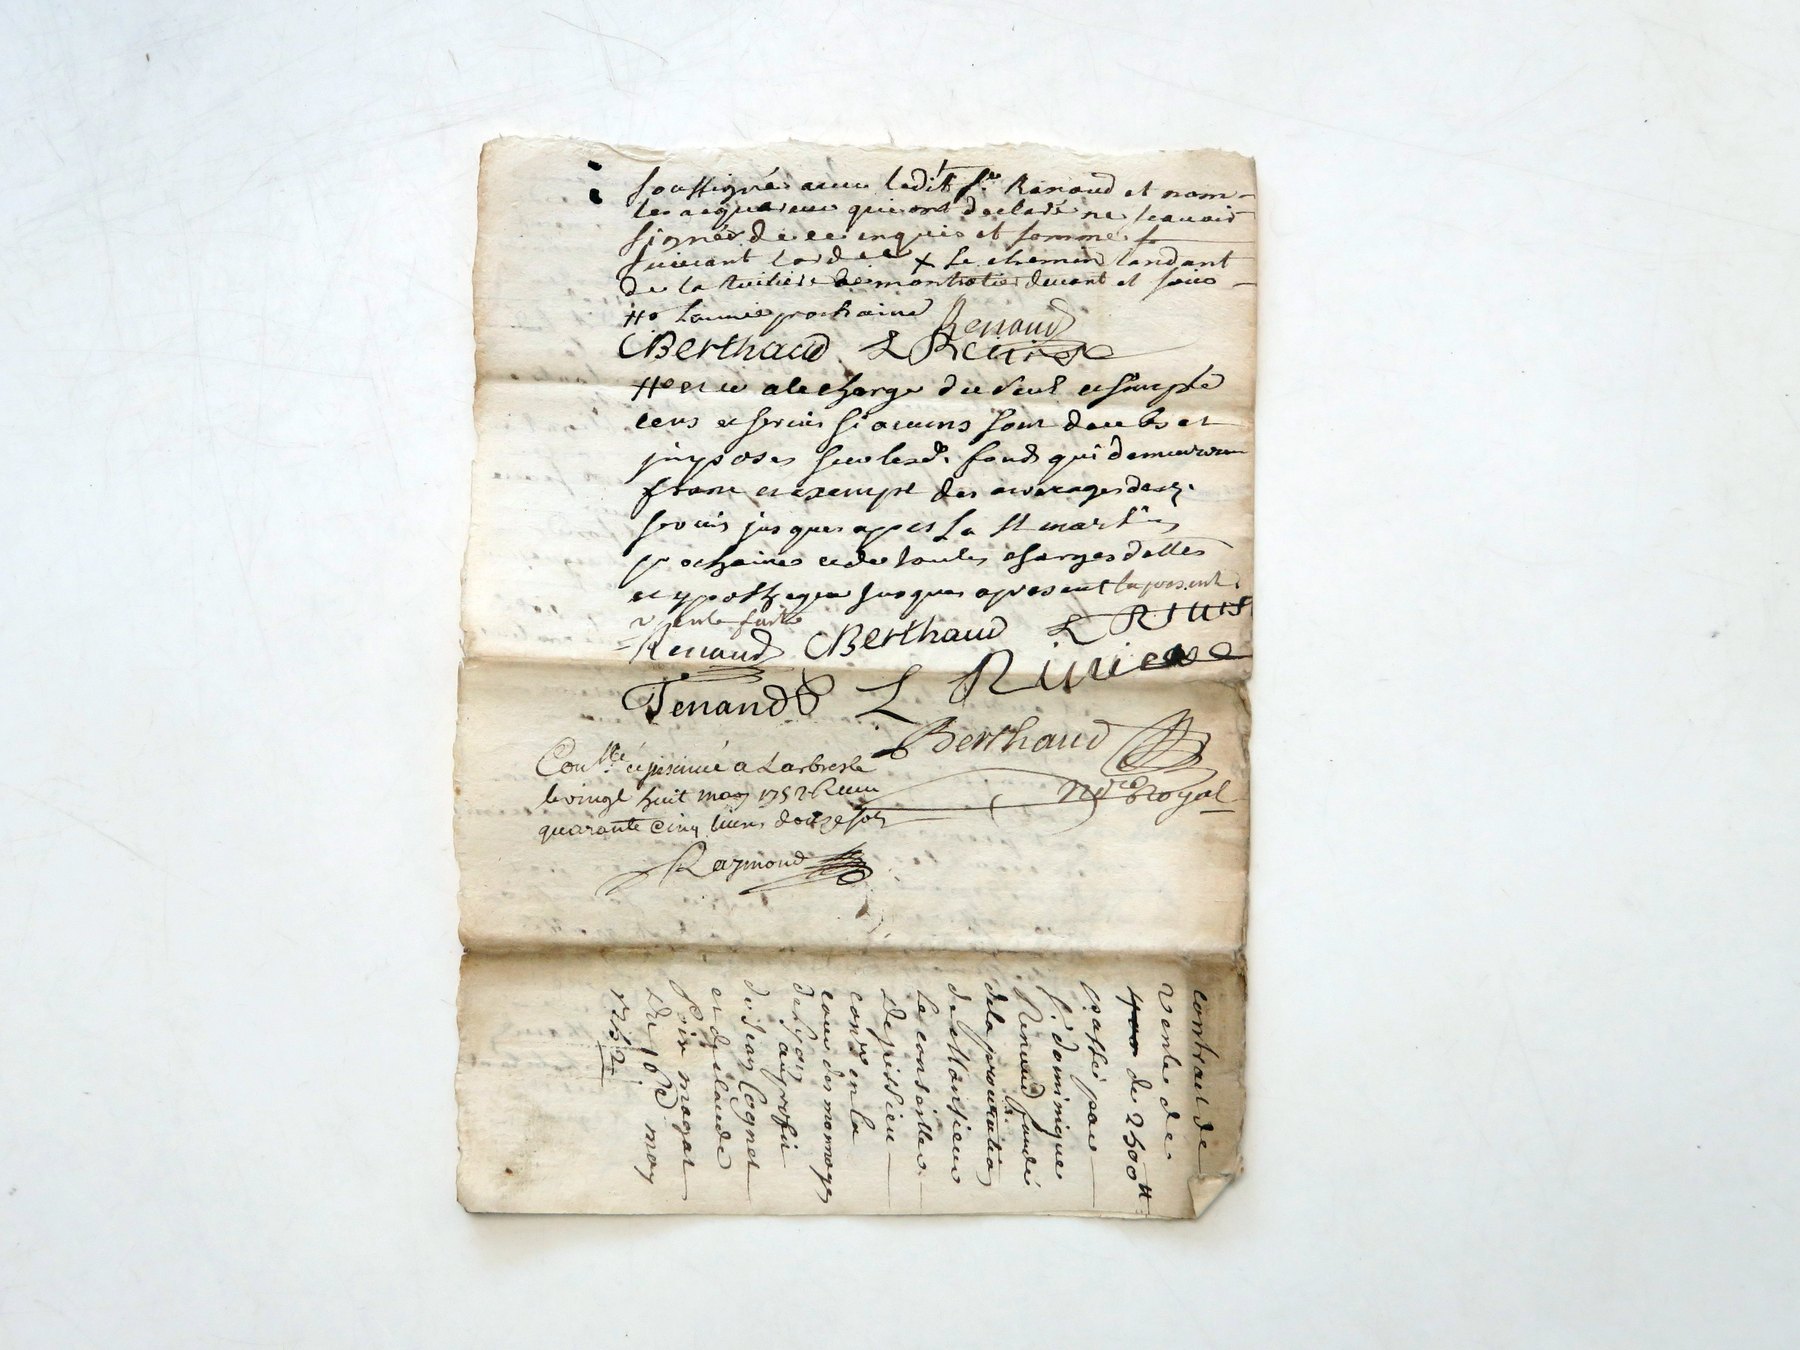 soussignés avec ledit Sr. Renaud et non
les acquereurs qui ont declaré ne scavoir
signer de ce enquis et sommé
suivant lord.ce x le chemin tandant
de la tuiliere de montrotier devant et
## Lannée prochaine
Renaud
Berthaud L Riviere
## et ce a la charge du seul et simple
cens et servis si aucuns sont deubs et
imposes sur lesd. fonds qui demeureront
franc et exempt des arrerages desd.
servis jusques apres la St martin
prochaine et de toutes charges dettes
et ypotheques jusques apresent la presente
vente faite
Renaud Berthaud L Riviere
Tenand L Riviere
Berthaud
nore Royal
Conllé et insinué a Larbresle
le vingt huit may 1752 Recu
quarante cinq livres douze sols
Raymond
contrat de
vente de
de 2500##
passé par
Sr. dominique
Renaud fondé
de la procuration
de Monsieur
le conseiller
Depissieu
conser en la
cour des monnoyes
de Lyon
au profit
de Jean Cognet
et de claude
Poin magat
Du 16e may
1752